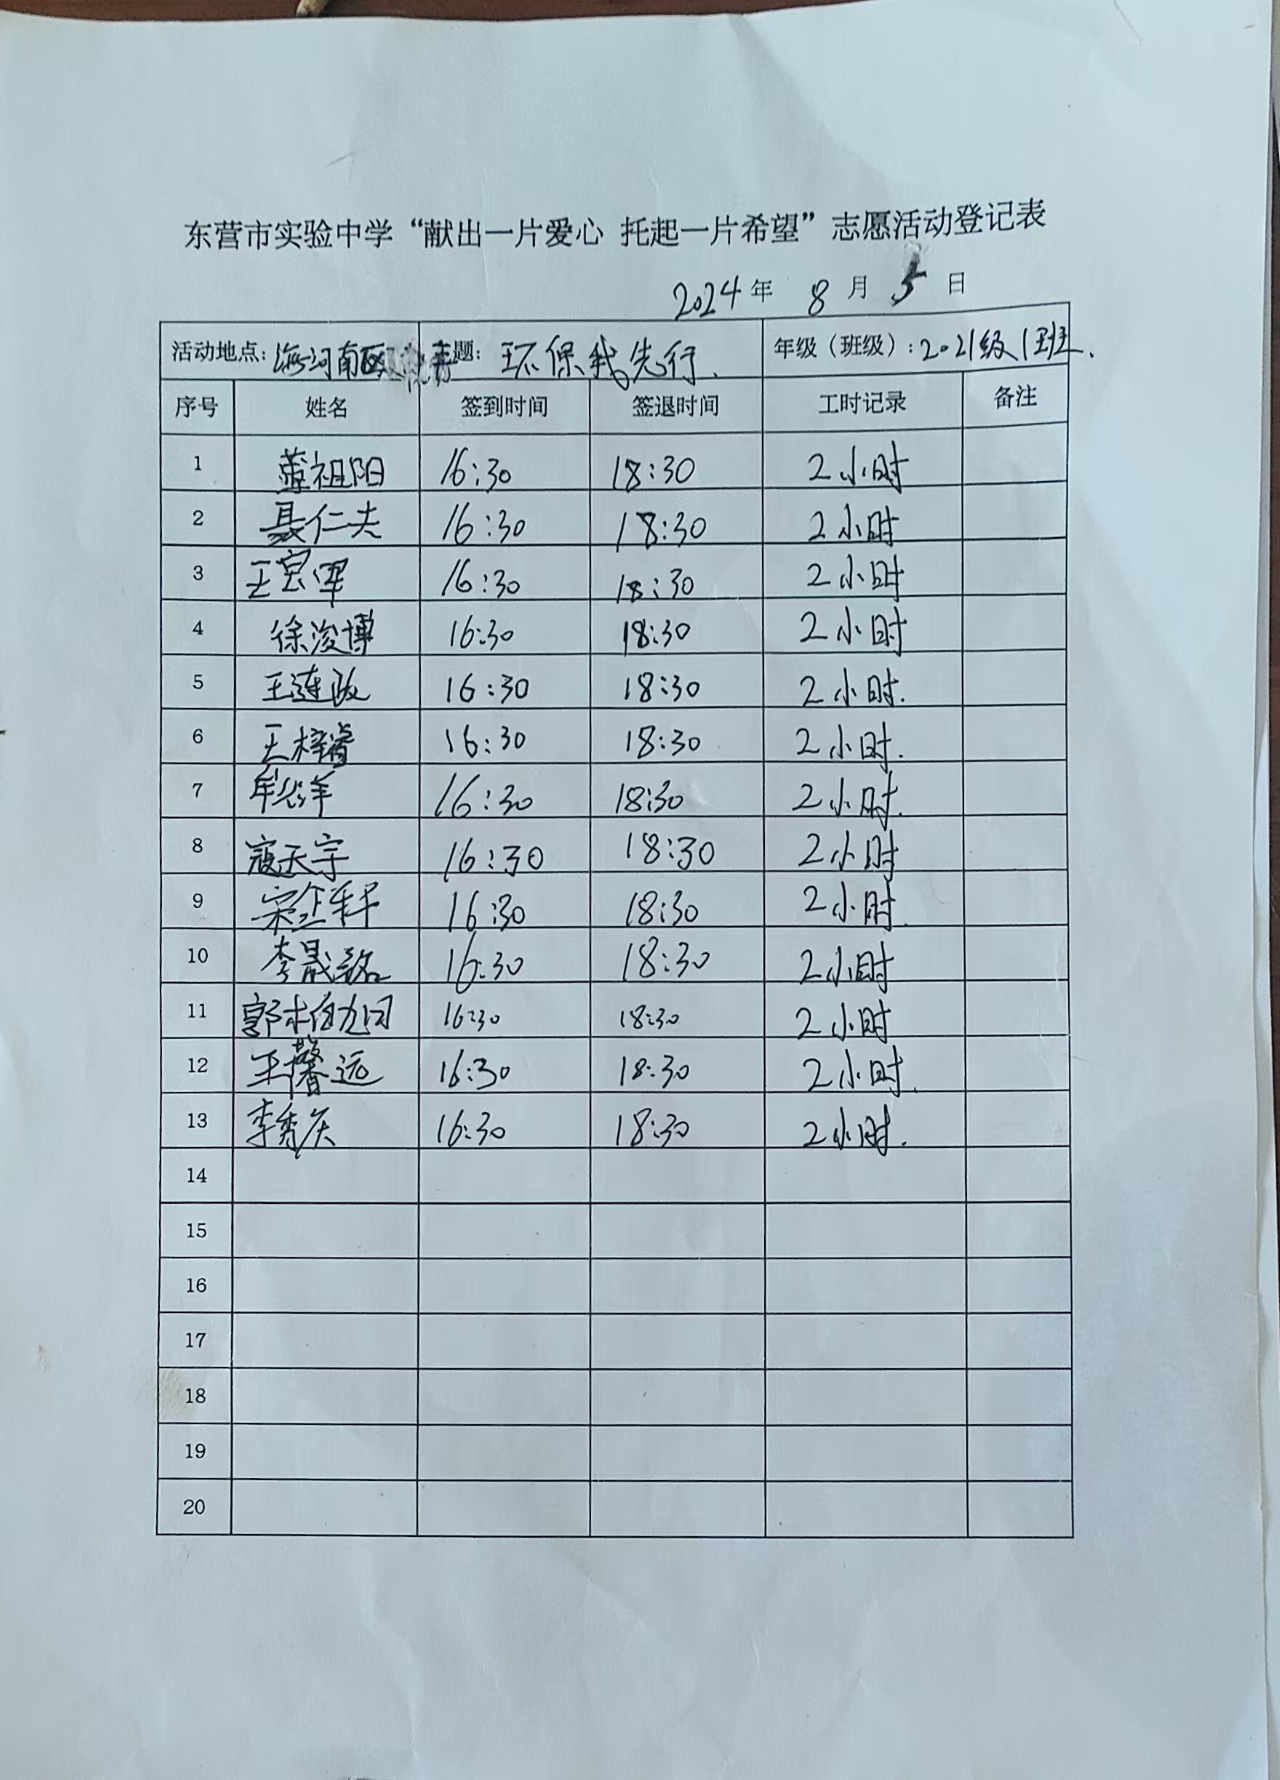 东营市实验中学“献出一片爱心 托起一片希望”志愿活动登记表
2024年 8月 5日
活动地点: 海河南区 主题: 环保我先行. 年级（班级）: 2021级1班.
序号 姓名 签到时间 签退时间 工时记录 备注
1 董祖阳 16:30 18:30 2小时
2 聂仁夫 16:30 18:30 2小时
3 王宏军 16:30 18:30 2小时
4 徐浚博 16:30 18:30 2小时
5 王连政 16:30 18:30 2小时.
6 王梓睿 16:30 18:30 2小时.
7 16:30 18:30 2小时.
8 寇天宇 16:30 18:30 2小时
9 16:30 18:30 2小时.
10 李晟铭 16:30 18:30 2小时
11 郭柏旭 16:30 18:30 2小时
12 王馨远 16:30 18:30 2小时.
13 李秀庆 16:30 18:30 2小时.
14
15
16
17
18
19
20